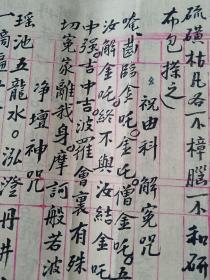 硫磺枯凡各一个樟腦一个和研
布包搽之
祝由科 解冤咒
唵齒臨金吒金吒僧金吒吾
汝解金吒終不與汝結金吒
中强吉中吉波羅會裏有殊
切冤家離我身摩訶般若波
净壇神咒
瑶池五龍水。泓澄丹井